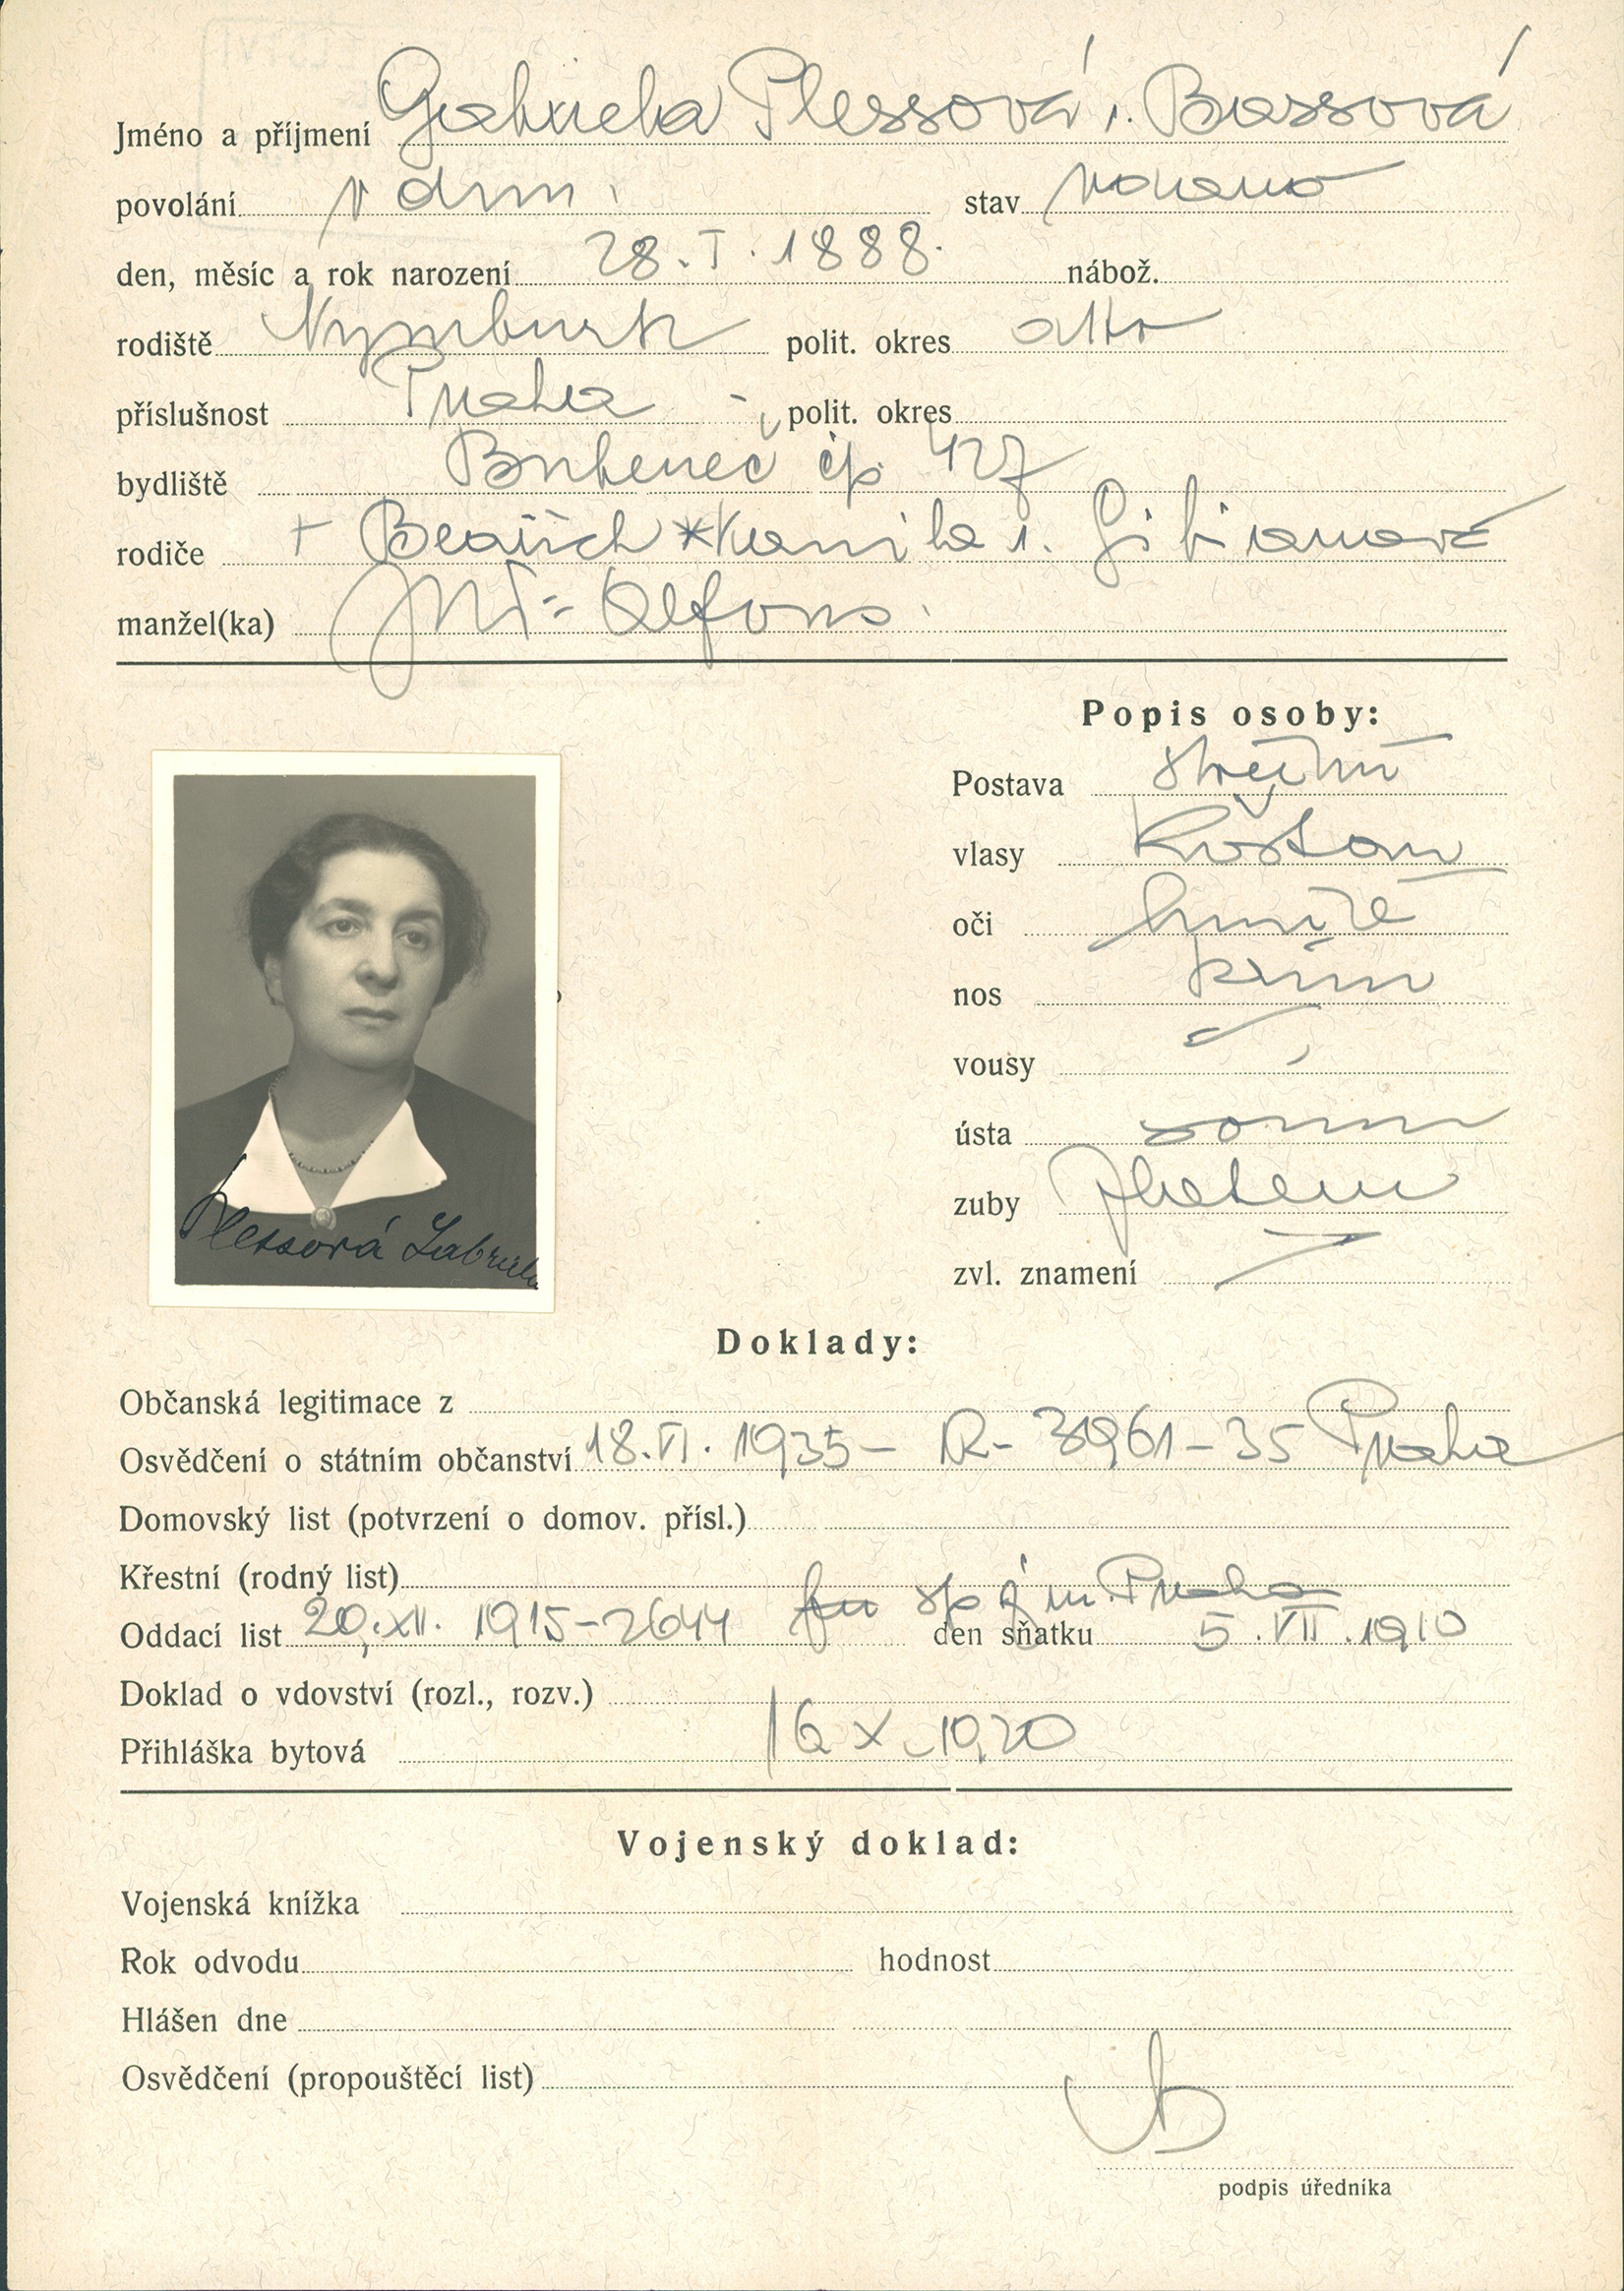 Jméno a příjmení Gabriela Plessová r. Bassová
povolání v dom. stav vdaná
den, měsíc a rok narození 28. I. 1888. nábož.
rodiště Nymburk polit. okres dtto
příslušnost Praha polit. okres
bydliště Bubeneč čp 427
rodiče + Bedřich * Kamila r. Gibianová
manžel(ka) Alfons.
Popis osoby:
Postava střední
vlasy kaštan
oči hnědé
nos přím
vousy
ústa norm
zuby
zvl. znamení
Plessová Gabriela
Doklady:
Občanská legitimace z
Osvědčení o státním občanství 18. VI. 1935 - R- 38961-35 Praha
Domovský list (potvrzení o domov. přísl.)
Křestní (rodný list)
Praha
Oddací list 20. XII. 1915-2644 den sňatku 5. VII. 1910
Doklad o vdovství (rozl., rozv.)
Přihláška bytová 16 X 1920
Vojenský doklad:
Vojenská knížka
Rok odvodu hodnost
Hlášen dne
Osvědčení (propouštěcí list)
podpis úředníka